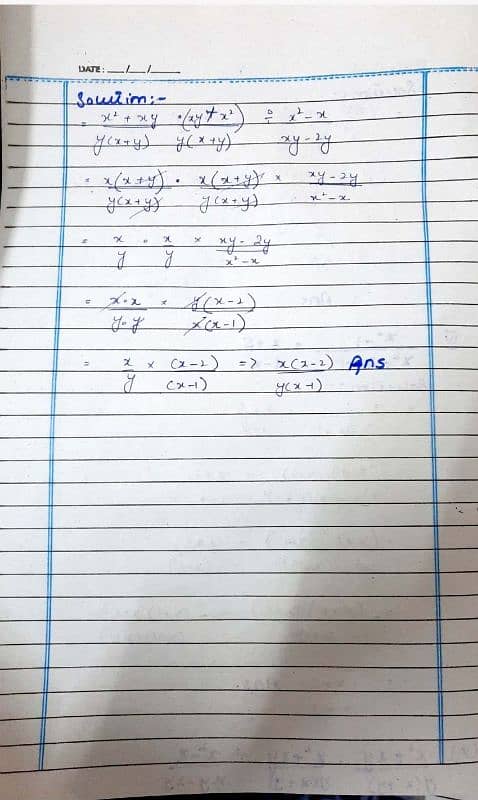 DATE: __/__/____
Solution:-
= x² + xy / y(x+y) · (xy + x²) / y(x+y) ÷ x² - x / xy - 2y
= x(x+y) / y(x+y) · x(x+y) / y(x+y) × xy - 2y / x² - x
= x/y · x/y × xy - 2y / x² - x
= x·x / y·y × y(x-2) / x(x-1)
= x/y × (x-2) / (x-1) => x(x-2) / y(x-1) Ans